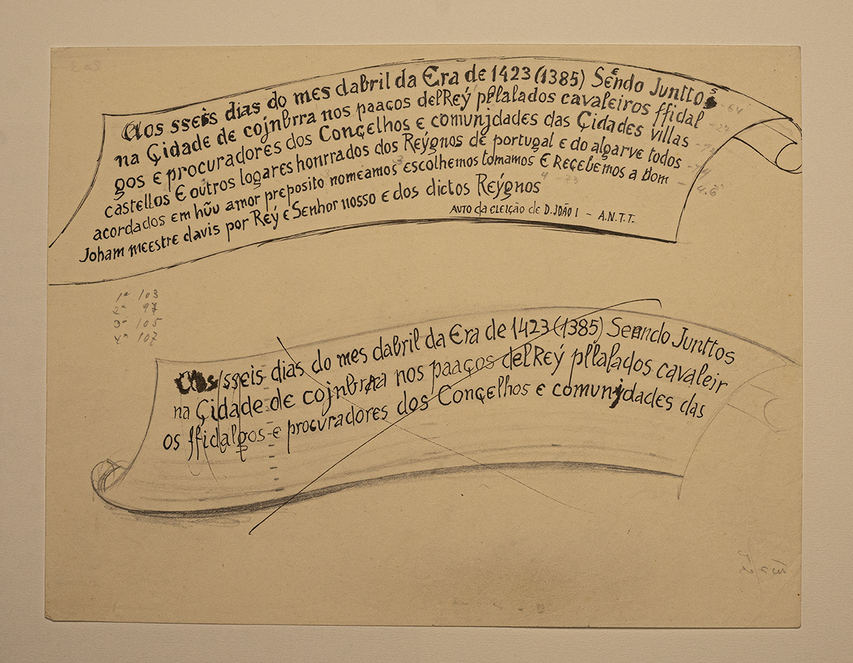 Aos sseis dias do mes dabril da Era de 1423 (1385) Sẽndo Junttos
na Çidade de cojnbrra nos paaços delRey pllalados cavaleiros ffidal
gos e procuradores dos Conçelhos e comunjdades das Çidades villas
castellos E outros logares honrrados dos Reÿgnos de portugal e do algarve todos
acordados em hũu amor preposito nomeamos escolhemos tomamos E Recebemos a Dom
Joham meestre davis por Reÿ e Senhor nosso e dos dictos Reÿgnos
AUTO da ELEIÇÃO de D. JOÃO I - A.N.T.T.
1ª 103
2ª 97
3ª 105
4ª 107
Aos sseis dias do mes dabril da Era de 1423 (1385) Seendo Junttos
na Çidade de cojnbrra nos paaços delReÿ pllalados cavaleir
os ffidalgos e procuradores dos Conçelhos e comunjdades das